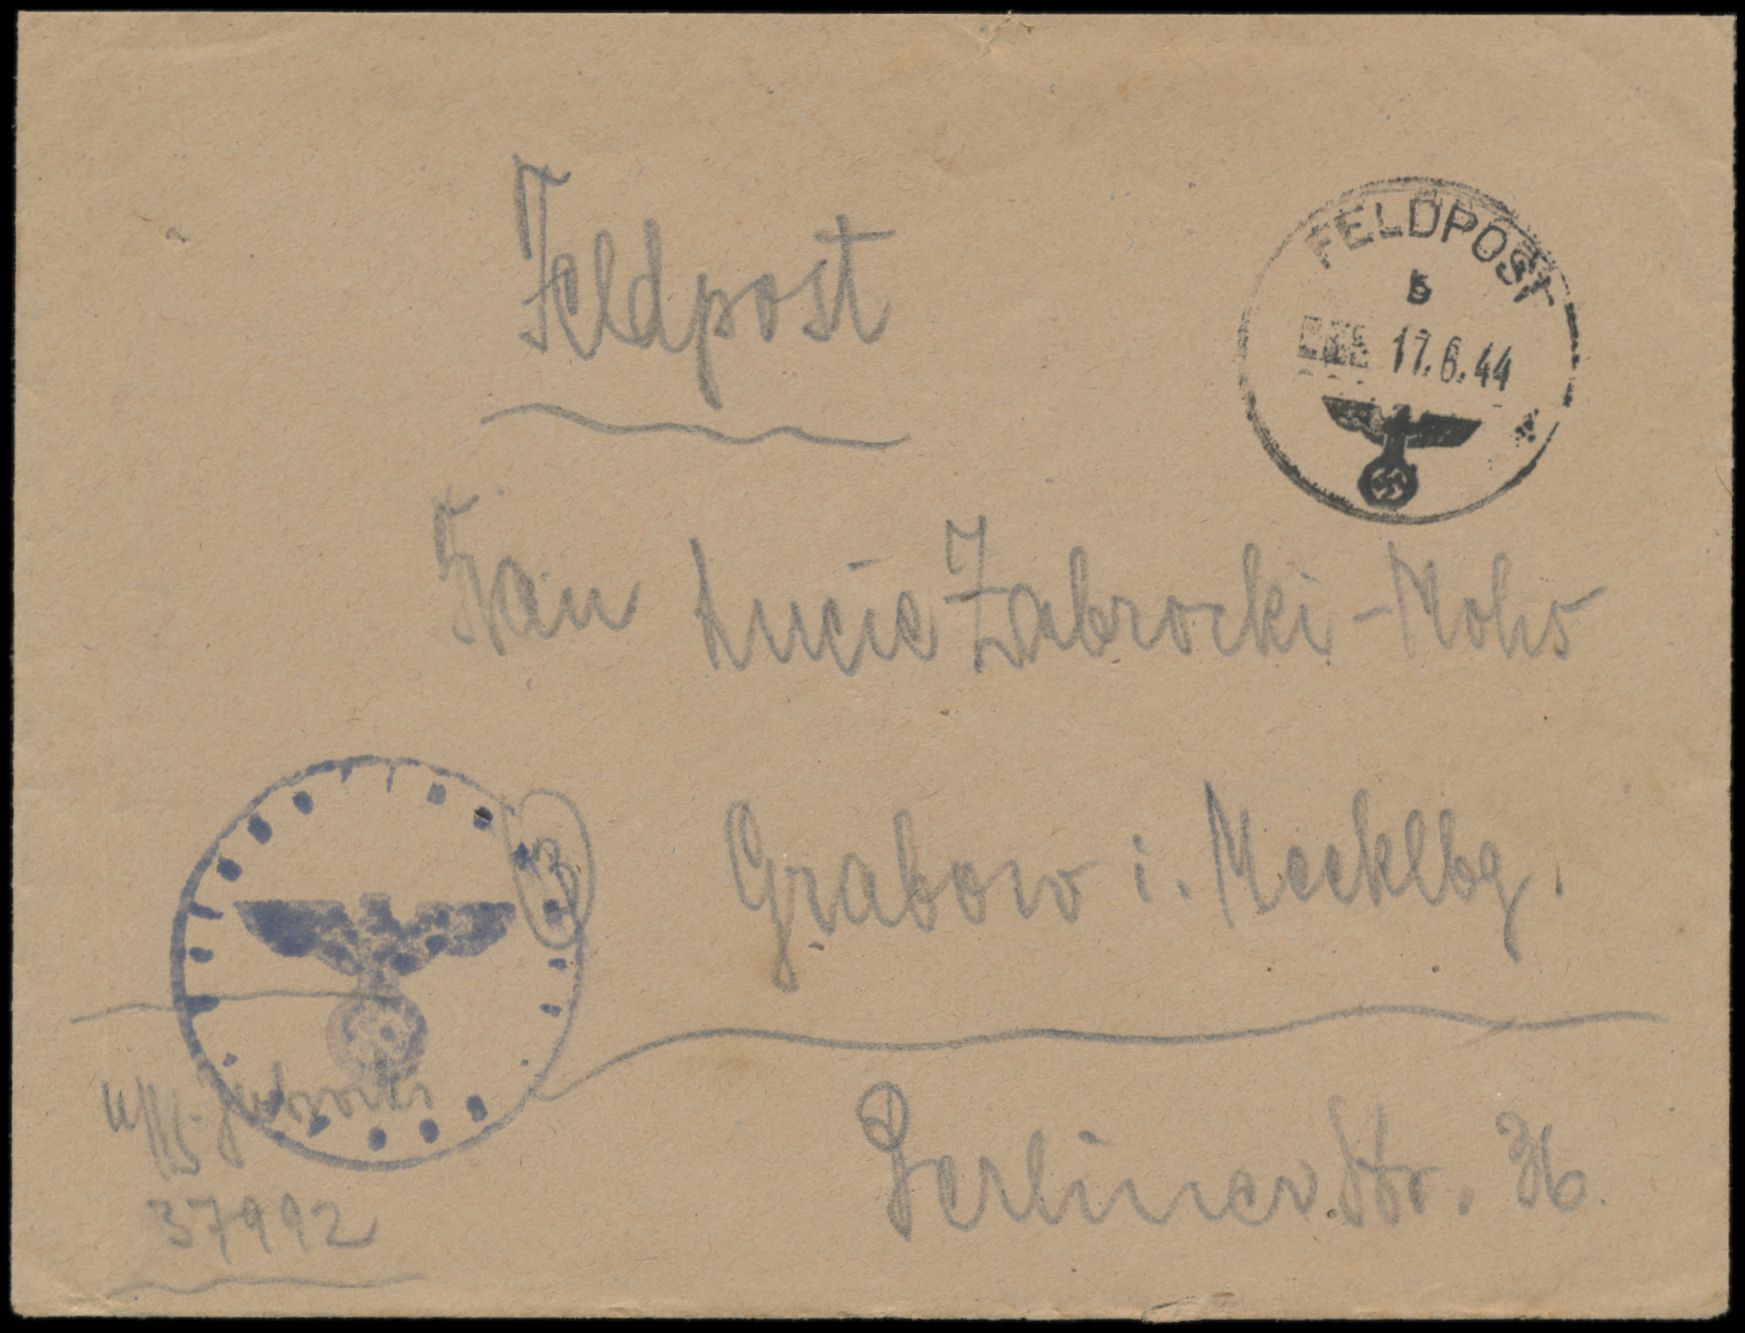 Feldpost
FELDPOST
b
17.6.44
Frau Lucie Zabrocki-Mohs
3
Grabow i. Mecklbg.
Uffz. Zabrocki
Berliner Str. 36.
37992